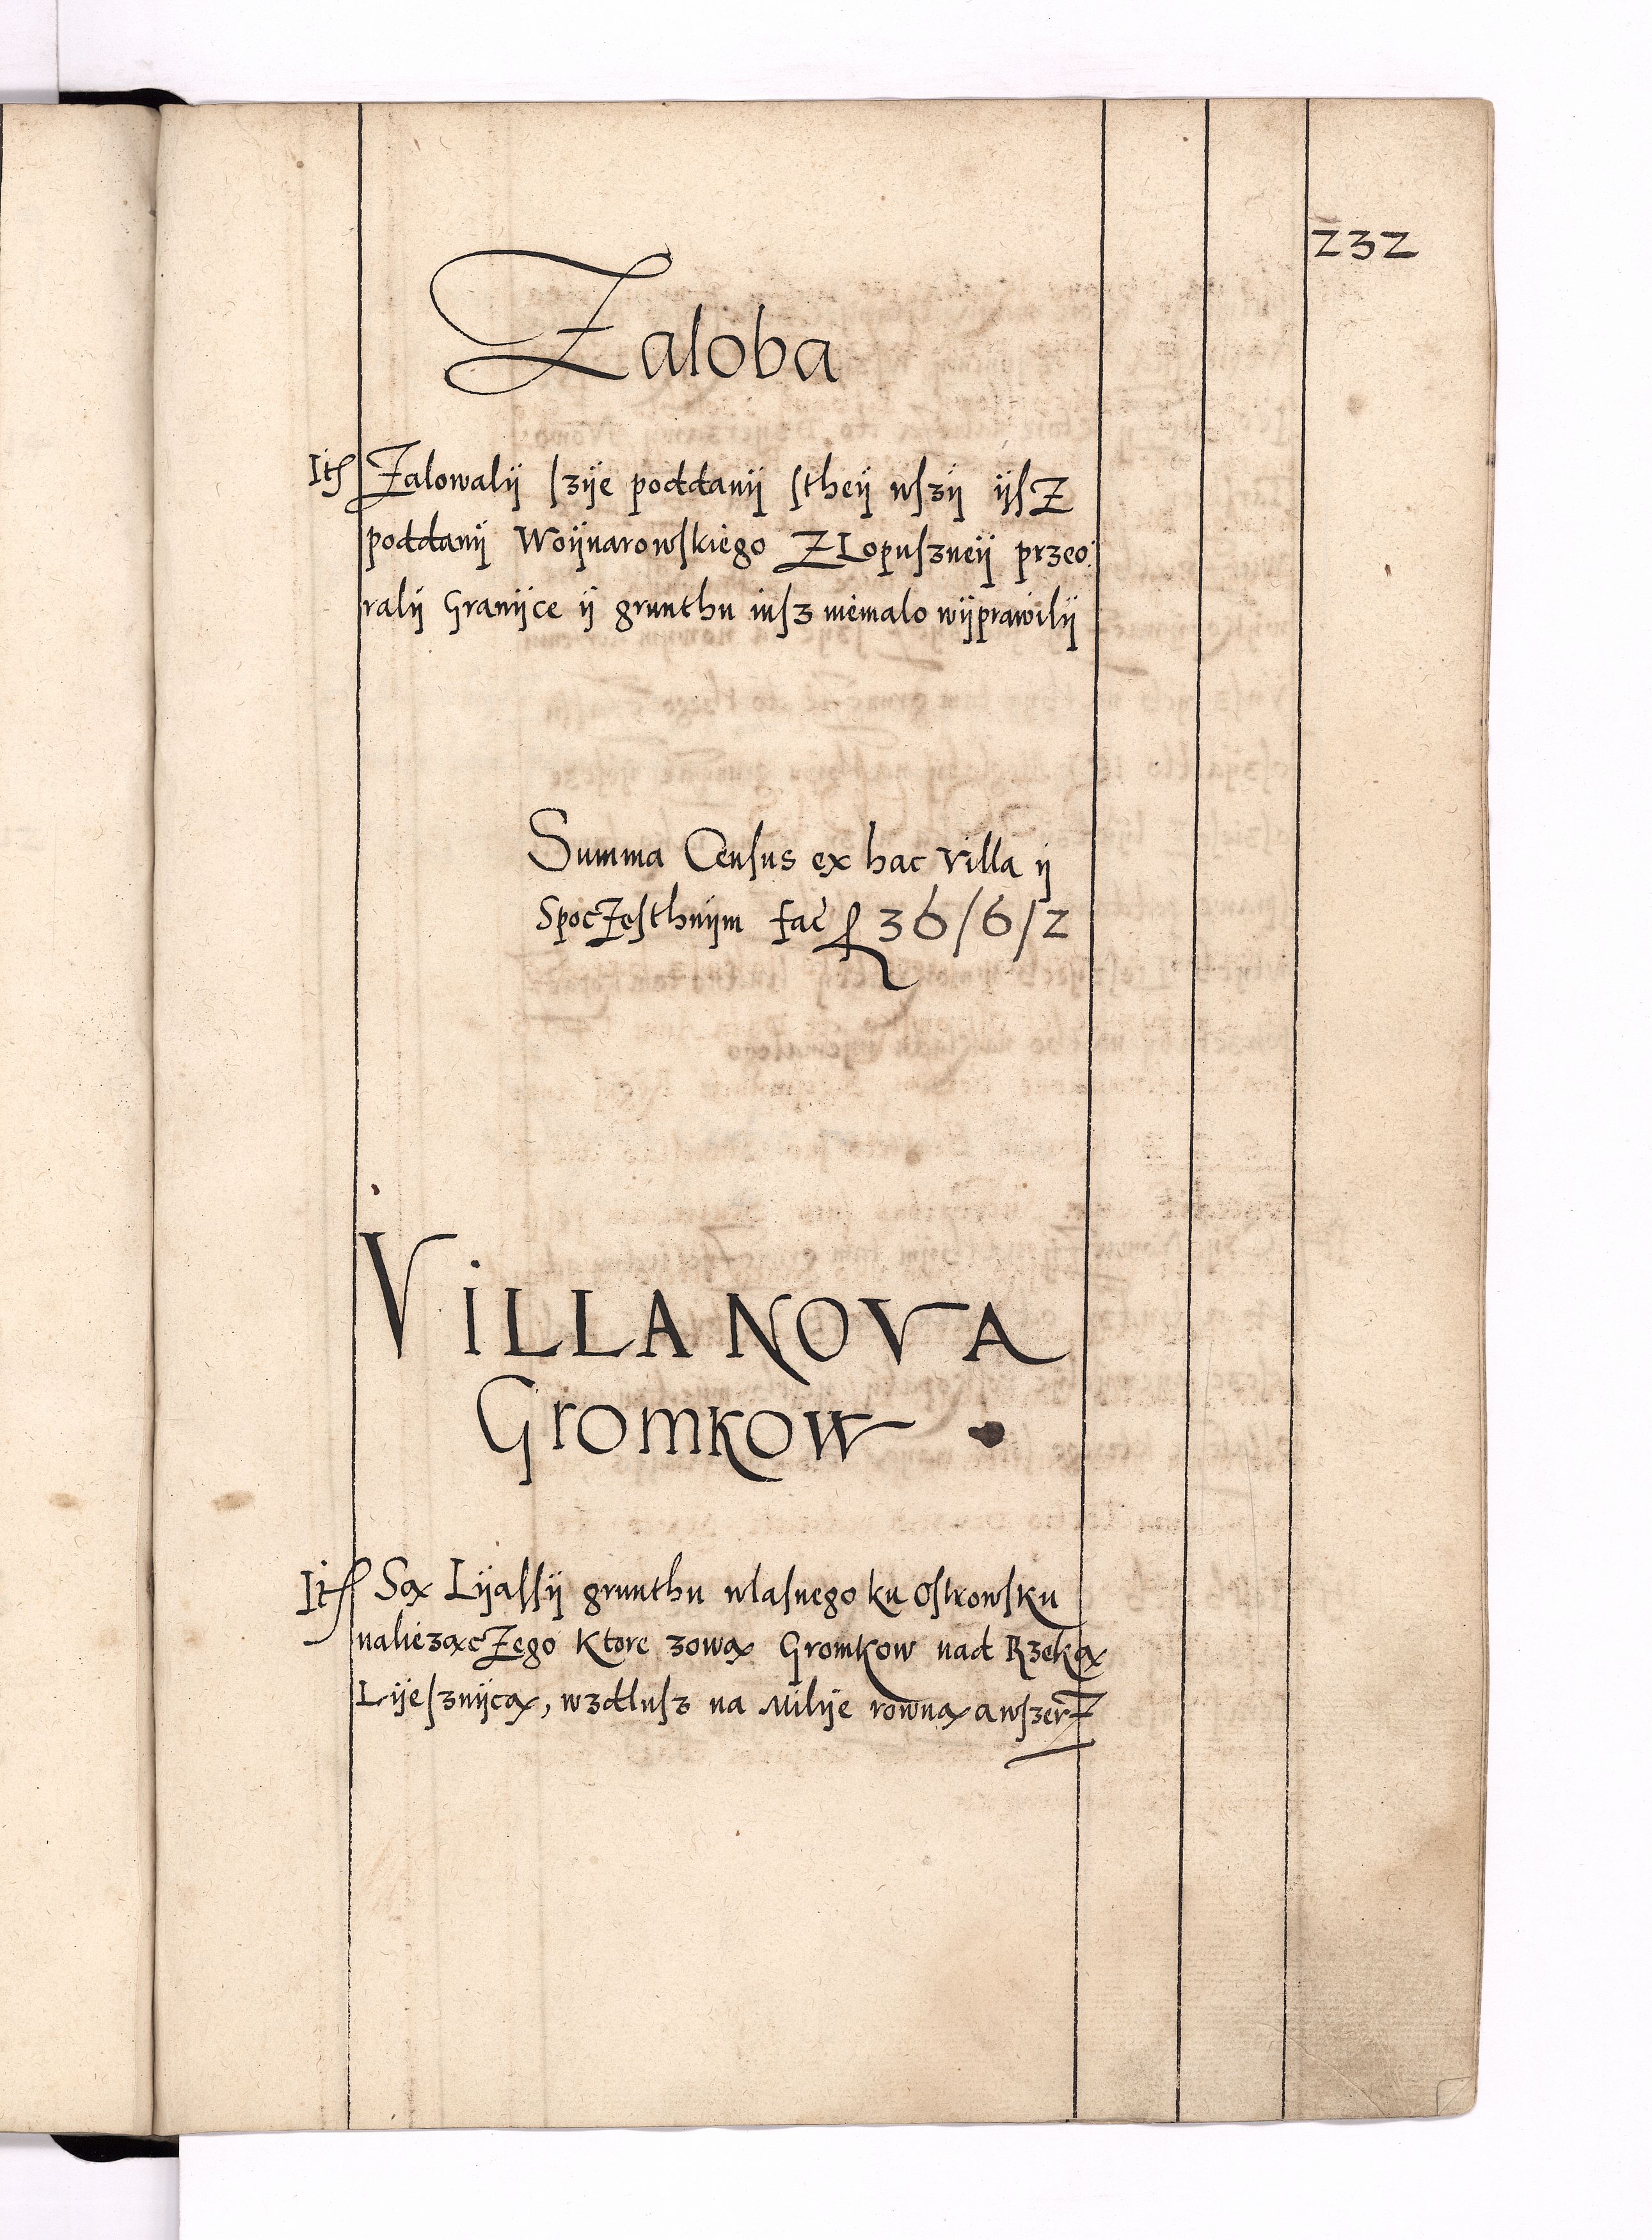 232
Zaloba
Itꝭ Zalowalÿ ſzÿe poddanÿ ſtheÿ wſzÿ ÿſZ
poddanÿ Woÿnarowſkiego ZLopuſzneÿ przeo:
ralÿ Granÿce ÿ grunthu inſz niemalo wÿprawilÿ
Summa Cenſus ex hac villa ÿ
SpocZeſthnÿm fac̃ ꝭ 36/6/2
VILLA NOVA
Gromkow
Itꝭ Są Lÿaſſÿ grunthu wlaſnego ku Oſtrowſku
należącZego Ktore zową Gromkow nad Rzeką
Lÿeſznÿcą, wzdluſz na Milÿe rowną a wſzerZ